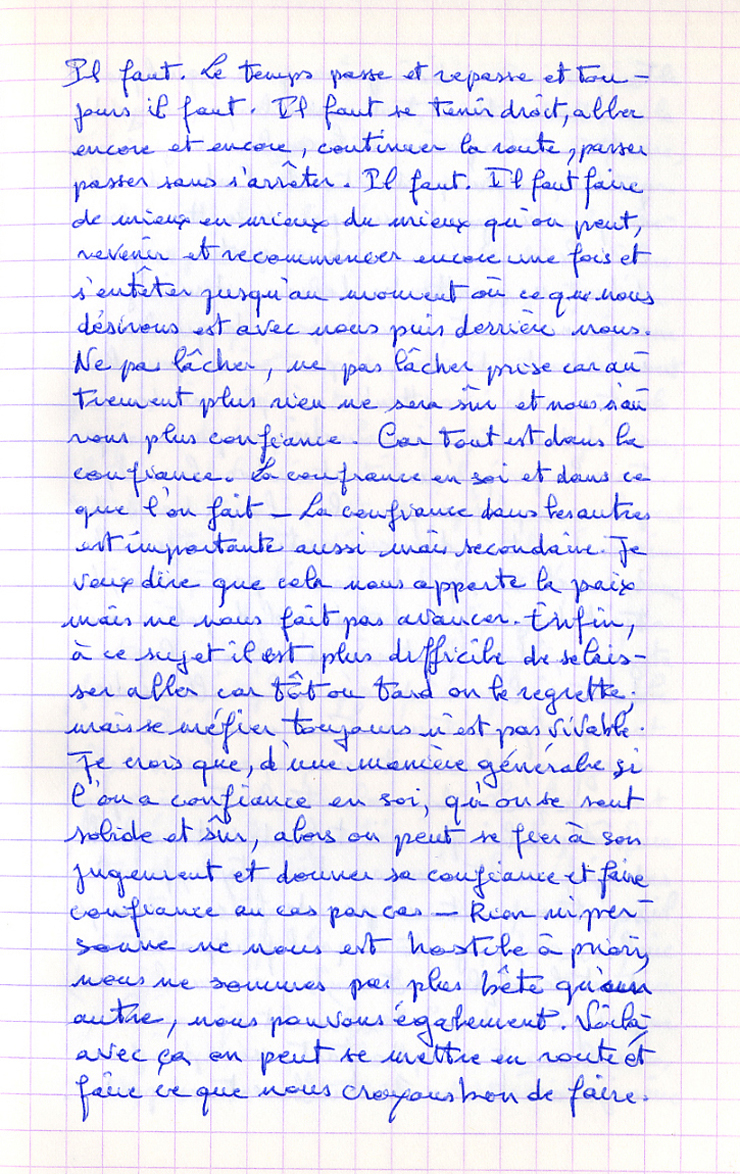 Il faut. Le temps passe et repasse et tou-
jours il faut. Il faut se tenir droit, aller
encore et encore, continuer la route, passer
passer sans s'arrêter. Il faut. Il faut faire
de mieux en mieux du mieux qu'on peut,
revenir et recommencer encore une fois et
s'entêter jusqu'au moment où ce que nous
désirons est avec nous puis derrière nous.
Ne pas lâcher, ne pas lâcher prise car au-
trement plus rien ne sera sûr et nous n'au
rons plus confiance. Car tout est dans la
confiance. La confiance en soi et dans ce
que l'on fait - La confiance dans les autres
est importante aussi mais secondaire. Je
veux dire que cela nous apporte la paix
mais ne nous fait pas avancer. Enfin,
à ce sujet il est plus difficile de se lais-
ser aller car tôt ou tard on le regrette,
mais se méfier toujours n'est pas vivable.
Je crois que, d'une manière générale si
l'on a confiance en soi, qu'on se sent
solide et sûr, alors on peut se fier à son
jugement et donner sa confiance et faire
confiance au cas par cas - Rien ni per-
sonne ne nous est hostile à priori,
nous ne sommes pas plus bête qu'un
autre, nous pouvons également. Voilà,
avec ça on peut se mettre en route et
faire ce que nous croyons bon de faire.